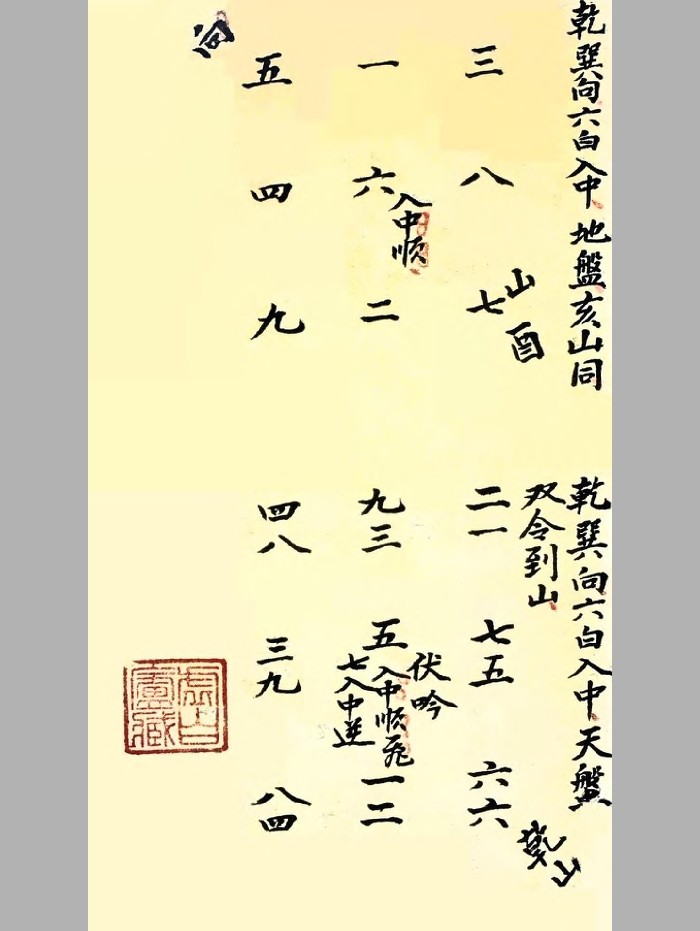 乾巽向六白入中地盤亥山同
向
五 一 三
四 六 八
入中順
九 二 七
山酉
乾巽向六白入中天盤
双令到山
四八 九三 二一
三九 五 七五
伏吟
入中順飛
七入中逆
八四 一二 六六
乾山
虛白廬藏